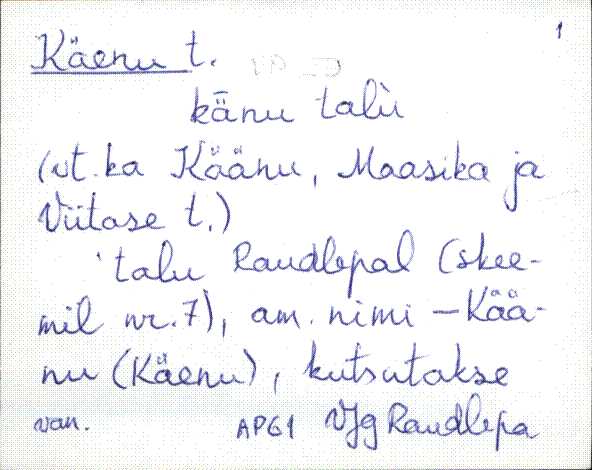 1
Käenu t.
kǟnu talù
(vt. ka Käänu, Maasika ja
Viitase t.)
talu Raudlepal (skee-
mil nr. 7), am. nimi – Kää-
nu (Käenu), kutsutakse
van. AP61 VJg Raudlepa